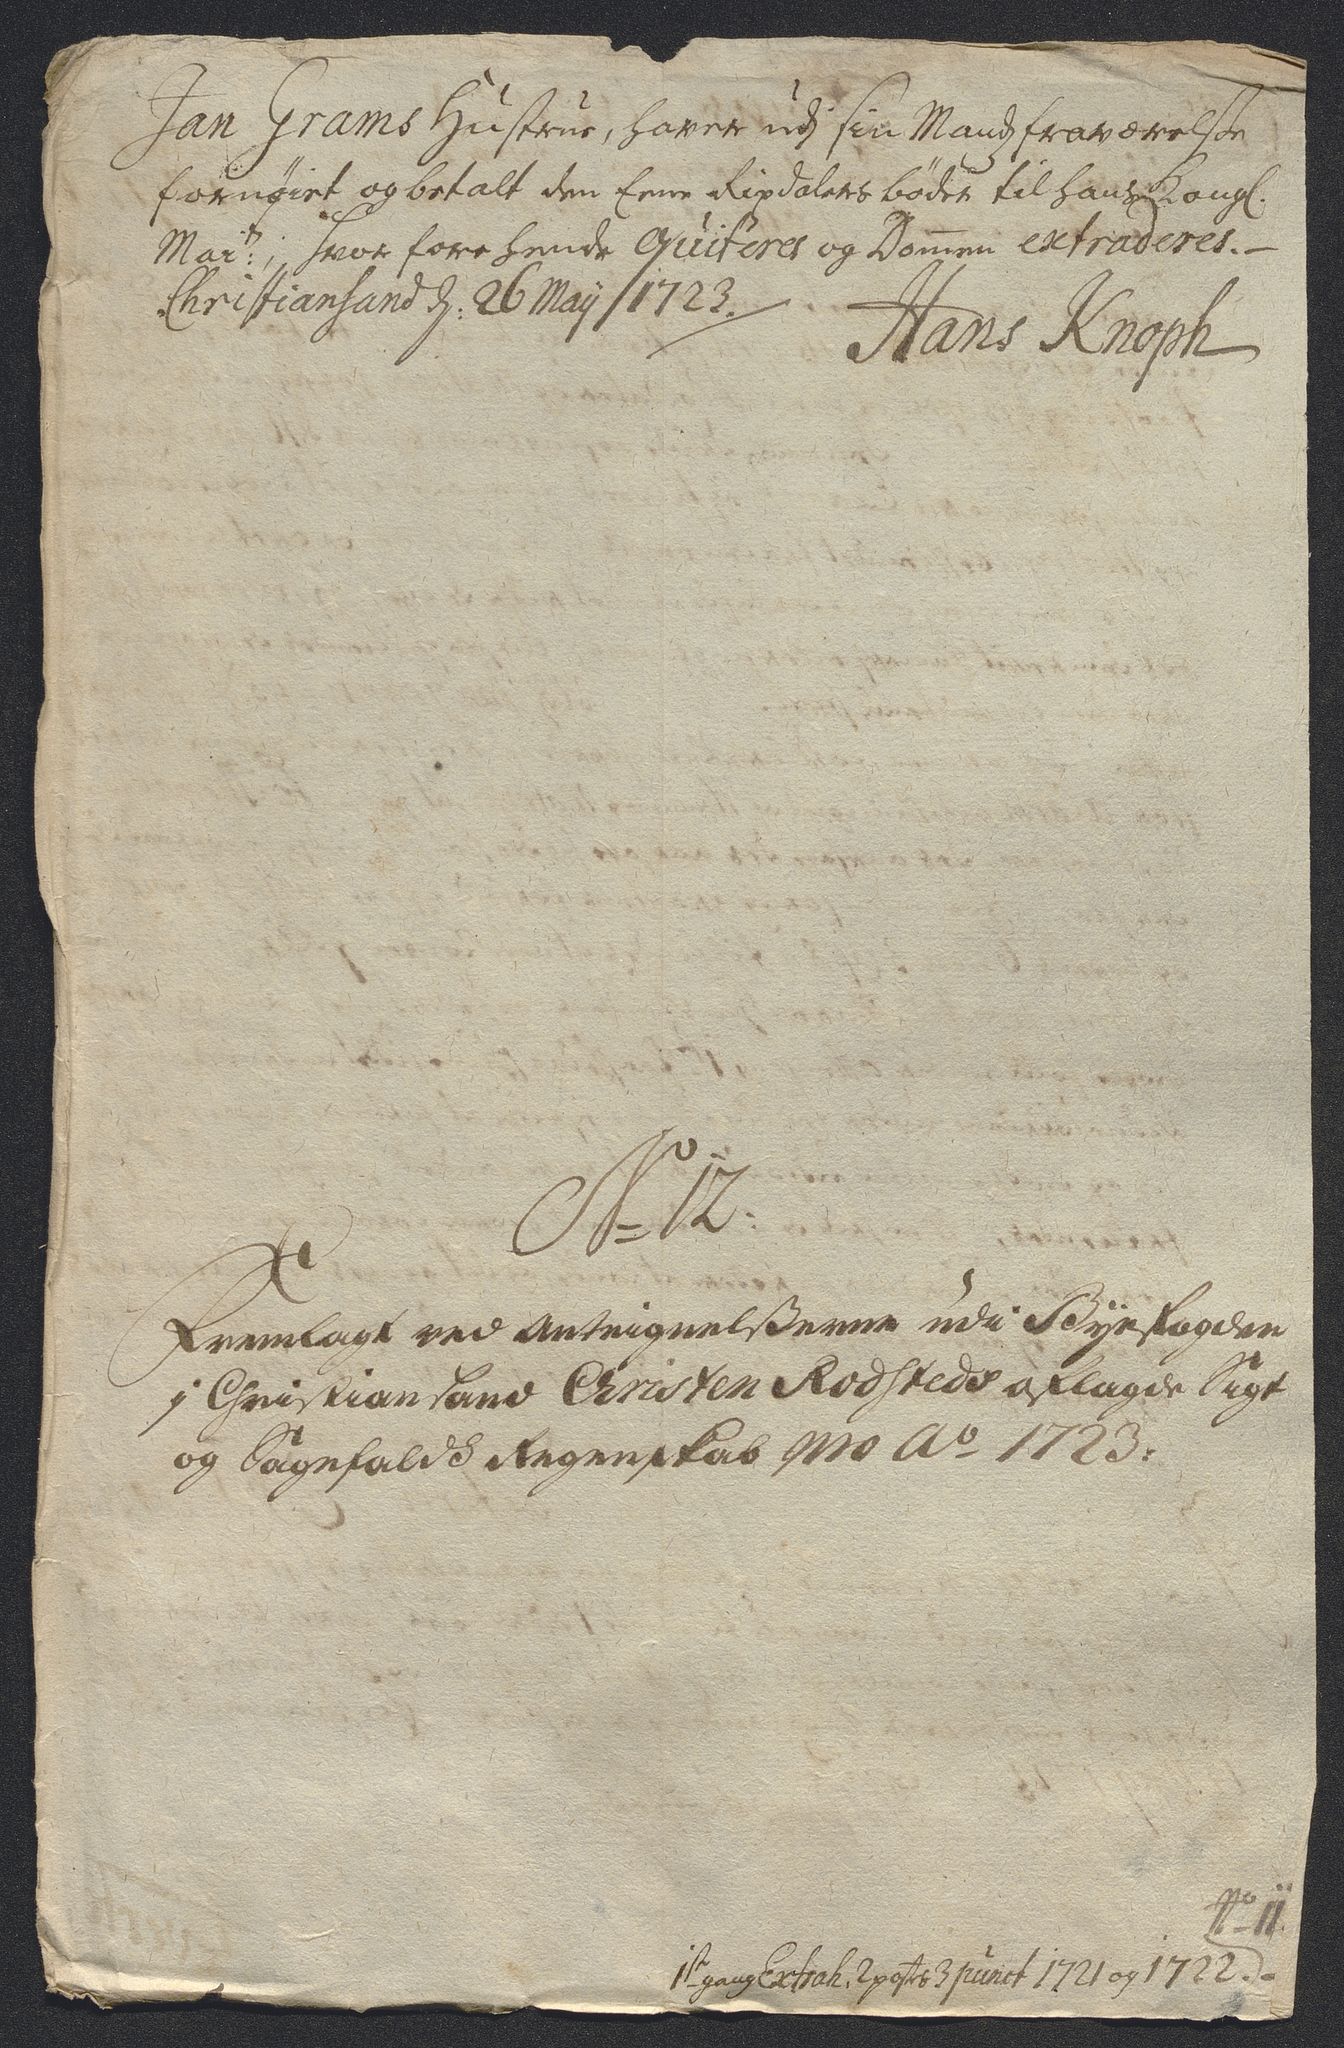 Jan Grams Hustrue, haver udj sin Mandß fraværelse
fornøiet og betalt den Eene Rixdalers bøder til hans Kongl.
May:, hvor fore hende Quiteres og Dommen extraderes.
Christiansand d: 26 May 1723.
Hans Knoph
No 12:
Fremlagt ved Anteignelßerne udi Byefogden
i Christiansand Christen Rodsteds aflagde Sigt
og Sagefalds Regenskab pro Ao 1723:
No 11.
1st gang Extrah. 2 posts 3 punct 1721 og 1722.